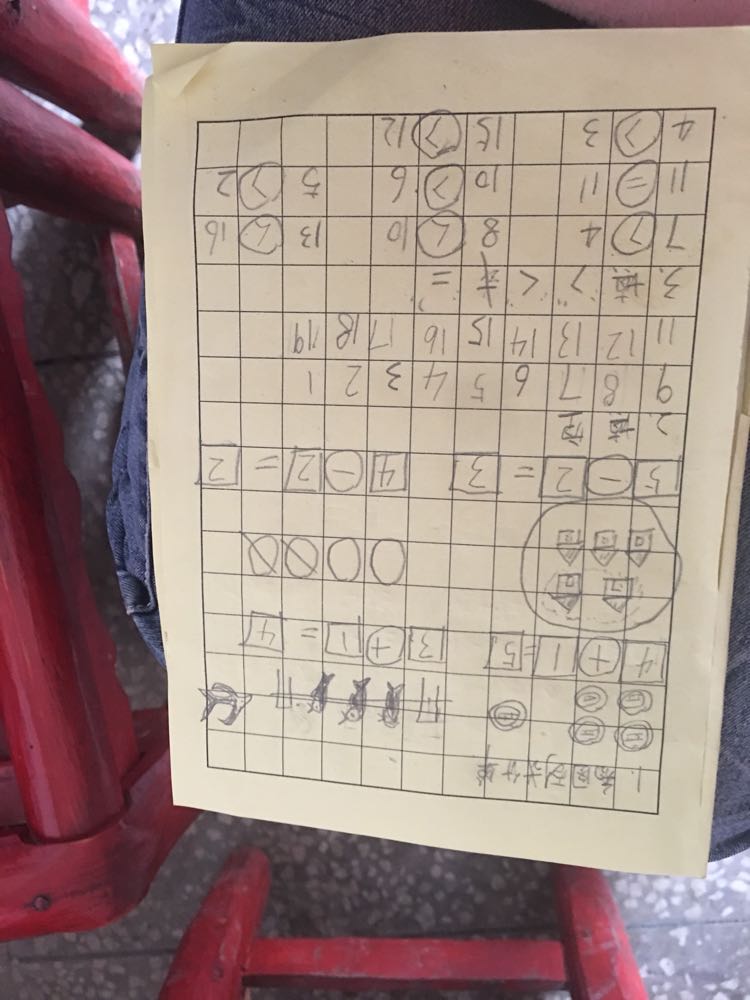 1. 看图列式计算
4 + 1 = 5 3 + 1 = 4
5 - 2 = 3 4 - 2 = 2
2.
9 8 7 6 5 4 3 2 1
11 12 13 14 15 16 17 18 19
3. 填 ">" "<" 或 "="
7 > 4 8 < 10 13 < 16
11 = 11 10 > 6 5 > 2
4 > 3 15 > 12